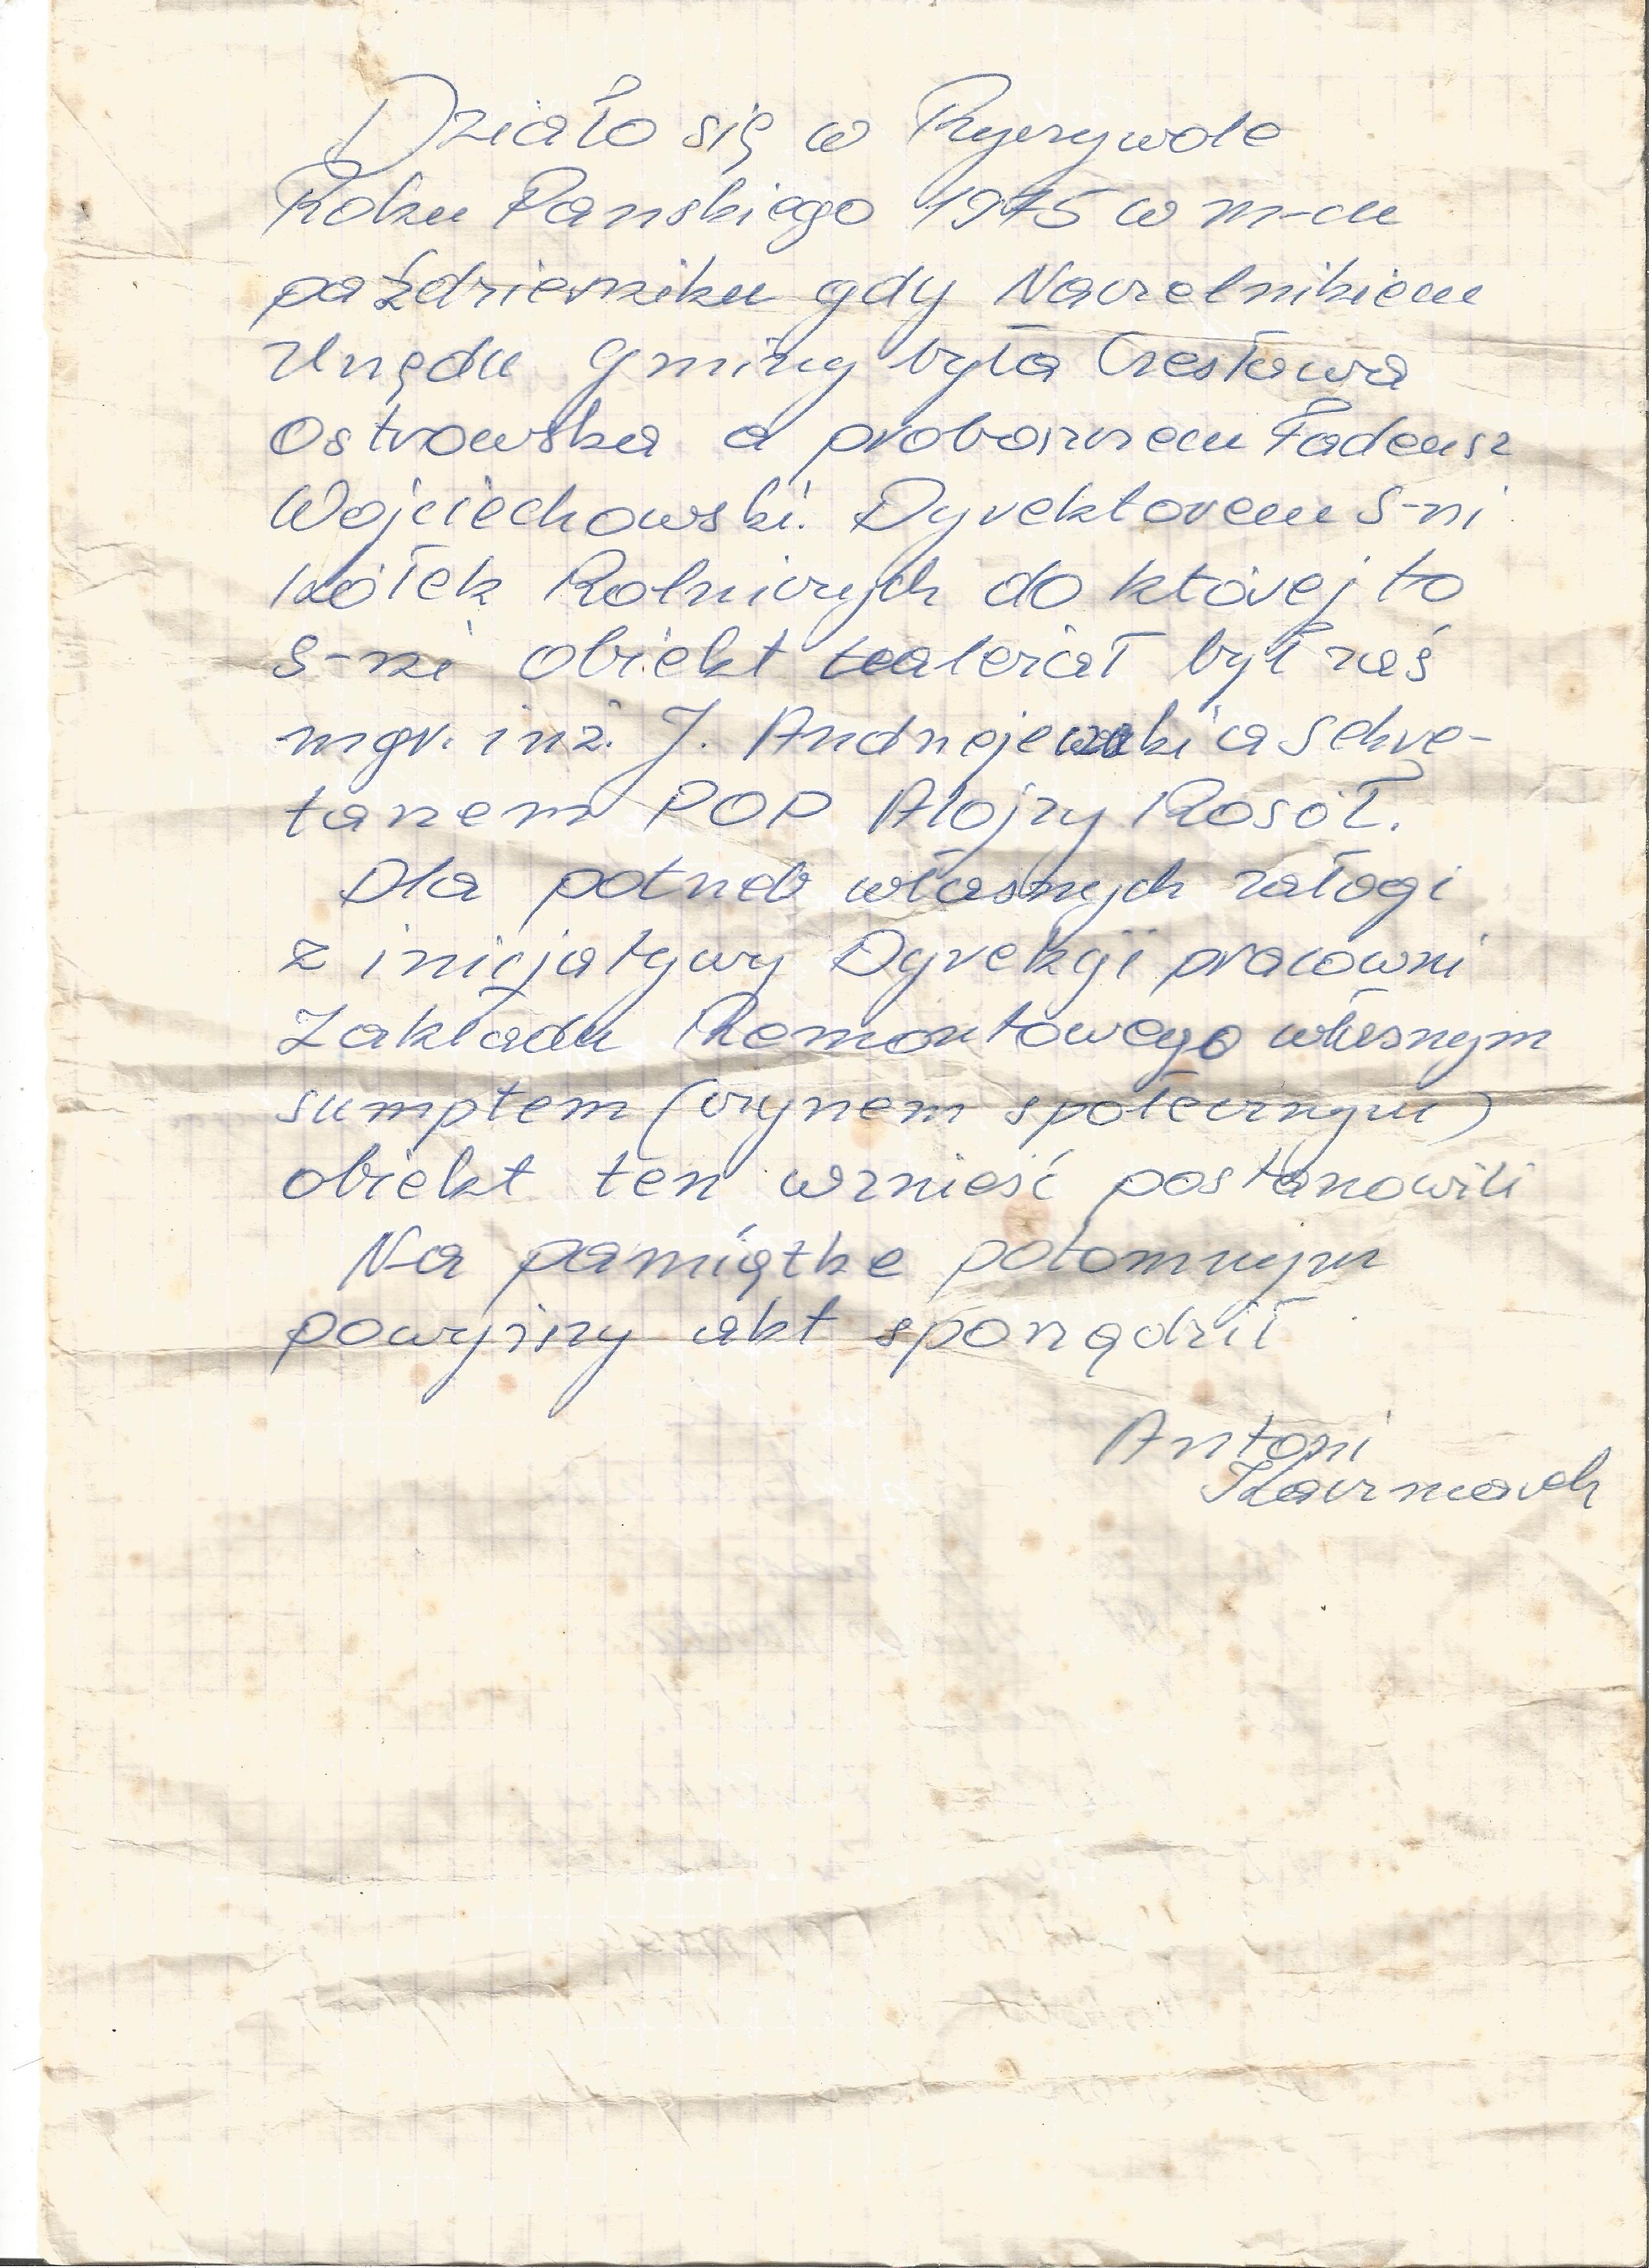 Działo się w Ryczywole
Roku Panskiego 1975 w m-cu
październiku gdy Naczelnikiem
Urzędu Gminy była Czesława
Ostrowska a proboszczem Tadeusz
Wojciechowski. Dyrektorem S-ni
Kółek Rolniczych do której to
S-ni obiekt należał był zaś
mgr. inż. J. Andrzejewski a sekre-
tarzem POP Alojzy Rosół.
Dla potrzeb własnych załogi
z inicjatywy Dyrekcji pracowni
Zakładu Remontowego własnym
sumptem (czynem społecznym)
obiekt ten wznieść postanowili
Na pamiątke potomnym
powyższy akt sporządził
Antoni
Kaczmarek